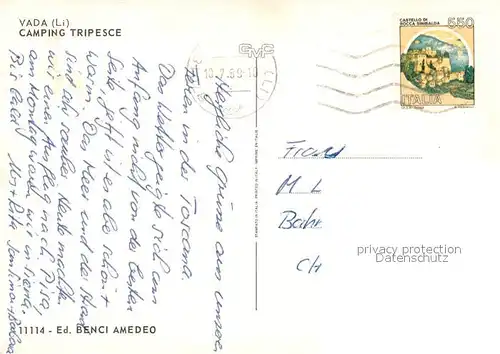 VADA (Li)
CAMPING TRIPESCE
CMC
10.7.89-18
CASTELLO DI
ROCCA SINIBALDA
550
ITALIA
Herzliche Grüsse aus unseren
Ferien in der Toscana.
Das Wetter zeigte sich am
Anfang nicht von der besten
Seite jetzt ist es aber schön +
warm. Das Meer und der Strand
sind sauber. Heute machten
wir einen Ausflug nach Pisa,
am Montag waren wir in Siena.
Bis bald
Frau
M L
CH
privacy protection
11114 - Ed. BENCI AMEDEO